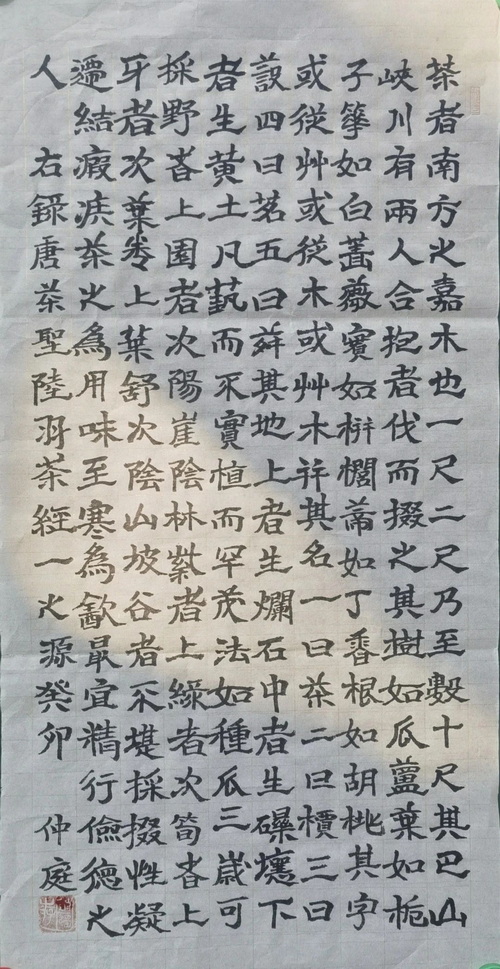 茶者南方之嘉木也一尺二尺乃至數十尺其巴山
峽川有兩人合抱者伐而掇之其樹如瓜蘆葉如梔
子華如白薔薇實如栟櫚蒂如丁香根如胡桃其字
或從艸或從木或艸木并其名一曰茶二曰檟三曰
蔎四曰茗五曰荈其地上者生爛石中者生礫壤下
者生黃土凡蓺而不實植而罕茂法如種瓜三歲可
採野者上園者次陽崖陰林紫者上綠者次筍者上
牙者次葉卷上葉舒次陰山坡谷者不堪採掇性凝
遰結瘕疾茶之為用味至寒為飲最宜精行儉德之
人 右錄唐茶聖陸羽茶經一之源癸卯 仲庭